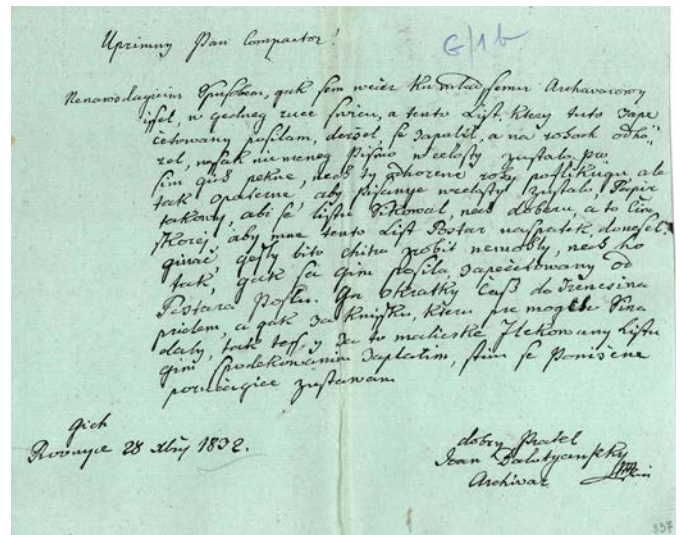 Uprimny Pan Compactor!
G/1b
Nenawodagicim Spusobem, gak sem wčer ku mladssemu Archivarowy
issel, w gedneg ruce swicu, a tento List, ktery tuto zape
četowany posilam, deržel se zapalil, a na rohach odho
rel, wssak nicmeneg Pismo w celosty zustalo, pro
sim giž pekne, nech ty ohorene rohy poflikugu, ale
tak opaterne, aby pisanye w celosty zustalo, Papir
takowy, abi se listu Sikowal, nech doberu, a to čim
skorej, aby mne tento List Postar naspatek donesel.
ginač gestly bito chitru zrobit nemohly, nech ho
tak, gak sa gim posila, zapečetowany od
Postara Posslu. Ga okratky čass do Trencsina
pridem, a gak za knižku, kteru pre mogeho Sina
daly, tak tess, y za to malicske flekowany Listu
gim spodekowanim zaplatim, stim se Ponižene
poručagice zustawam
gich
Rownye 28 xbrij 1832.
dobry Pratel
Ioan Dalutyansky
Archivar
337